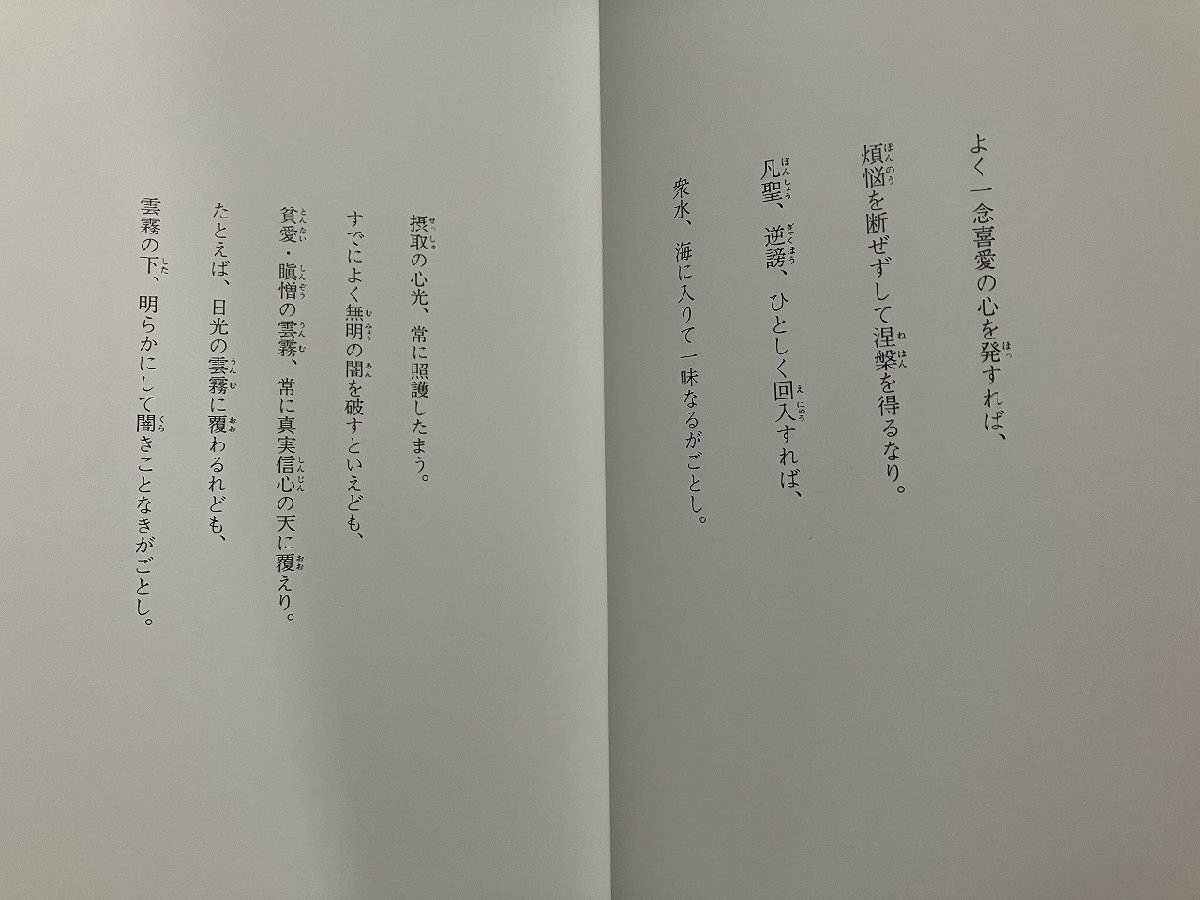 よく一念喜愛の心を発すれば、
煩悩を断ぜずして涅槃を得るなり。
凡聖、逆謗、ひとしく回入すれば、
衆水、海に入りて一味なるがごとし。
摂取の心光、常に照護したまう。
すでによく無明の闇を破すといえども、
貪愛・瞋憎の雲霧、常に真実信心の天に覆えり。
たとえば、日光の雲霧に覆わるれども、
雲霧の下、明らかにして闇きことなきがごとし。